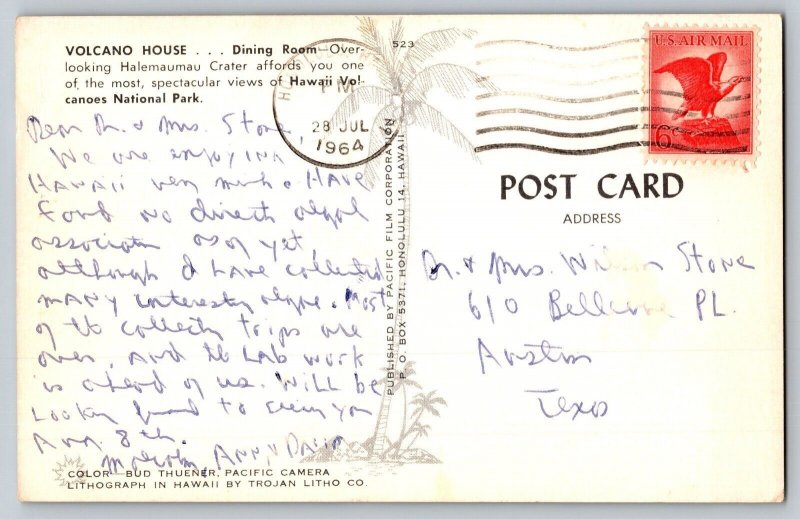 VOLCANO HOUSE . . . Dining Room—Over-
looking Halemaumau Crater affords you one
of the most, spectacular views of Hawaii Vol-
canoes National Park.
523
Dear Dr. & Mrs. Stone,
We are enjoying
HAWAII very much. HAVE
found no direct algal
association as of yet,
although I have collected
many interesting algae. Most
of the collecting trips are
over, and the Lab work
is ahead of us. Will be
Looking forward to seeing you
Aug. 8th.
Malcolm, ANN
COLOR BUD THUENER, PACIFIC CAMERA
LITHOGRAPH IN HAWAII BY TROJAN LITHO CO.
PUBLISHED BY PACIFIC FILM CORPORATION
P. O. BOX 5371, HONOLULU 14, HAWAII
PM
28 JUL
1964
U.S. AIR MAIL
6¢
POST CARD
ADDRESS
Dr. & Mrs. Wilson Stone
610 Bellevue PL.
Austin
Texas